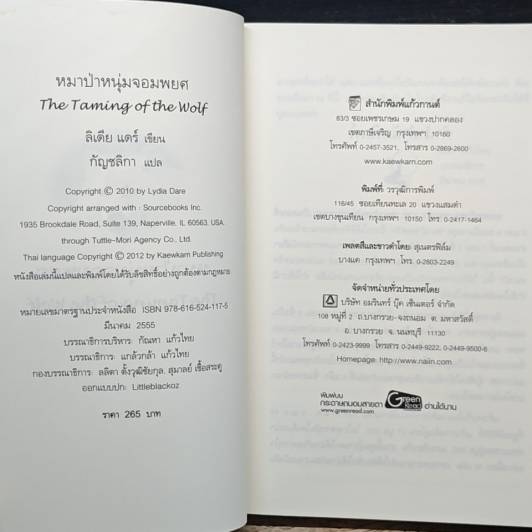 หมาป่าหนุ่มจอมพยศ
The Taming of the Wolf
ลิเดีย แดร์ เขียน
กัญชลิกา แปล
Copyright © 2010 by Lydia Dare
Copyright arranged with : Sourcebooks Inc.
1935 Brookdale Road, Suite 139, Naperville, IL 60563, USA.
through Tuttle-Mori Agency Co., Ltd.
Thai language Copyright © 2012 by Kaewkarn Publishing
หนังสือเล่มนี้แปลและพิมพ์โดยได้รับลิขสิทธิ์อย่างถูกต้องตามกฎหมาย
หมายเลขมาตรฐานประจำหนังสือ ISBN 978-616-524-117-5
มีนาคม 2555
บรรณาธิการบริหาร: กัณหา แก้วไทย
บรรณาธิการ: แกล้วกล้า แก้วไทย
กองบรรณาธิการ: ลลิตา ตั้งวุฒิชัยกุล, สุมาลย์ เชื้อสระคู
ออกแบบปก: Littleblackoz
ราคา 265 บาท
สำนักพิมพ์แก้วกานต์
83/3 ซอยเพชรเกษม 19 แขวงปากคลอง
เขตภาษีเจริญ กรุงเทพฯ 10160
โทรศัพท์ 0-2457-3521, โทรสาร 0-2869-2600
www.kaewkarn.com
พิมพ์ที่: วรวุฒิการพิมพ์
116/45 ซอยเทียนทะเล 20 แขวงแสมดำ
เขตบางขุนเทียน กรุงเทพฯ 10150 โทร. 0-2417-1464
เพลตสีและขาวดำโดย: สุเนตรฟิล์ม
บางแค กรุงเทพฯ โทร. 0-2803-2249
จัดจำหน่ายทั่วประเทศโดย:
บริษัท อมรินทร์ บุ๊ค เซ็นเตอร์ จำกัด
108 หมู่ที่ 2 ถ.บางกรวย-จงถนอม ต. มหาสวัสดิ์
อ. บางกรวย จ. นนทบุรี 11130
โทรศัพท์ 0-2423-9999 โทรสาร 0-2449-9222, 0-2449-9500-6
Homepage: http://www.naiin.com
พิมพ์บน
กระดาษถนอมสายตา Green Read อ่านได้นาน
www.greenread.com